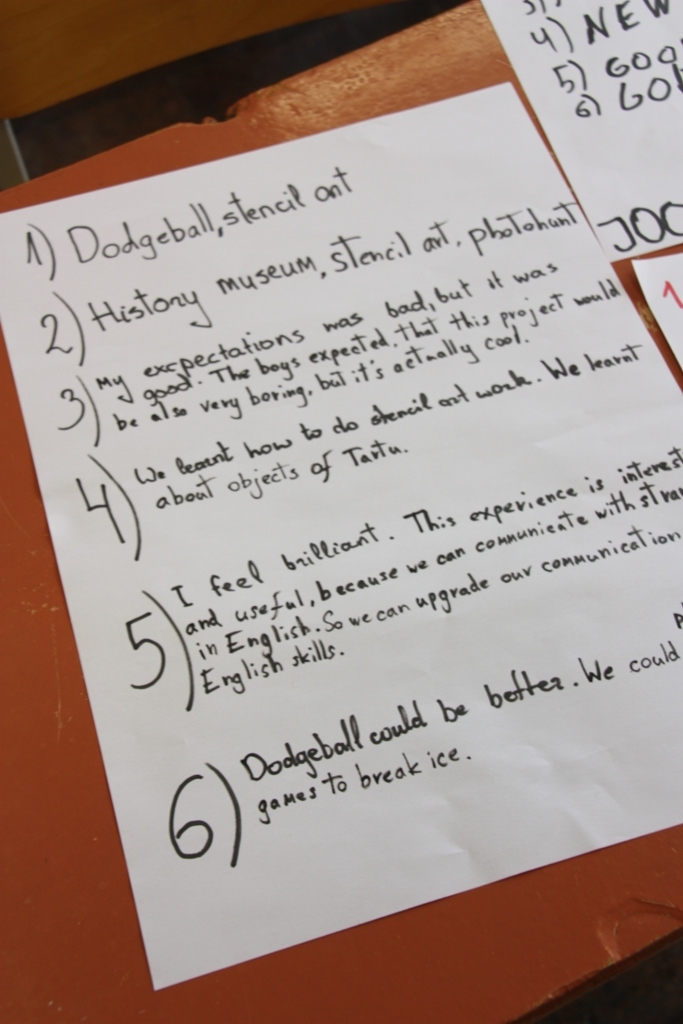 1) Dodgeball, stencil art
2) History museum, stencil art, photohunt
3) My expectations was bad, but it was
good. The boys expected, that this project would
be also very boring, but it's actually cool.
4) We learnt how to do stencil art work. We learnt
about objects of Tartu.
5) I feel brilliant. This experience is interest
and useful, because we can communicate with stran
in English. So we can upgrade our communication
English skills.
6) Dodgeball could be better. We could
games to break ice.
4) NEW
5) GOO
6) GO
JOO
1